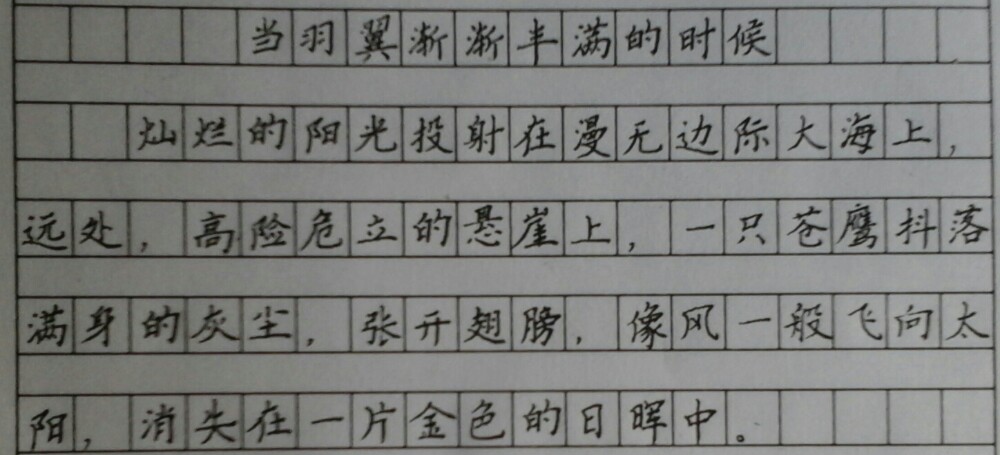 当羽翼渐渐丰满的时候
灿烂的阳光投射在漫无边际大海上，
远处，高险危立的悬崖上，一只苍鹰抖落
满身的灰尘，张开翅膀，像风一般飞向太
阳，消失在一片金色的日晖中。